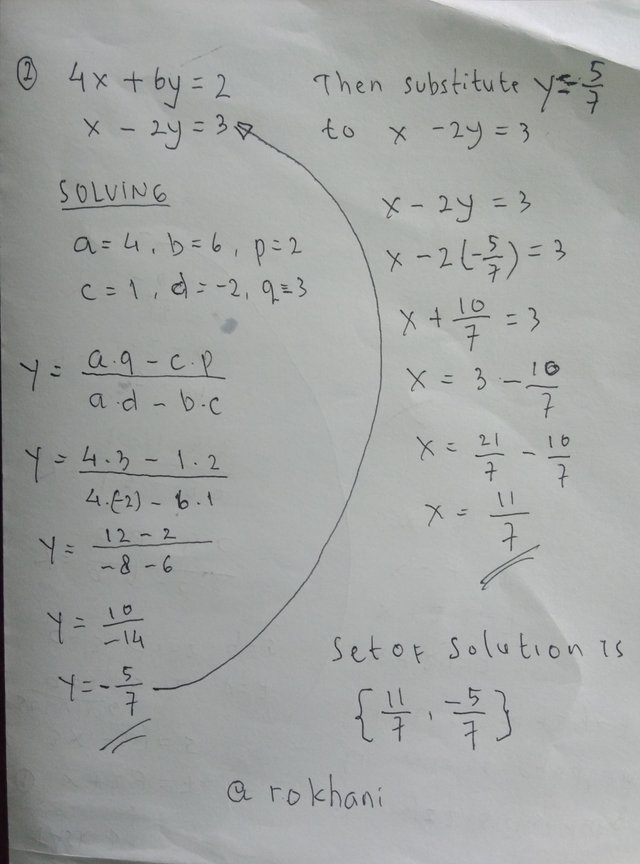 ② 4x + 6y = 2
x - 2y = 3
SOLVING
a = 4, b = 6, p = 2
c = 1, d = -2, q = 3
y = a.q - c.p / a.d - b.c
y = 4.3 - 1.2 / 4.(-2) - 6.1
y = 12 - 2 / -8 - 6
y = 10 / -14
y = - 5/7
Then substitute y = - 5/7
to x - 2y = 3
x - 2y = 3
x - 2(-5/7) = 3
x + 10/7 = 3
x = 3 - 10/7
x = 21/7 - 10/7
x = 11/7
Set of Solution is
{ 11/7 , -5/7 }
@rokhani